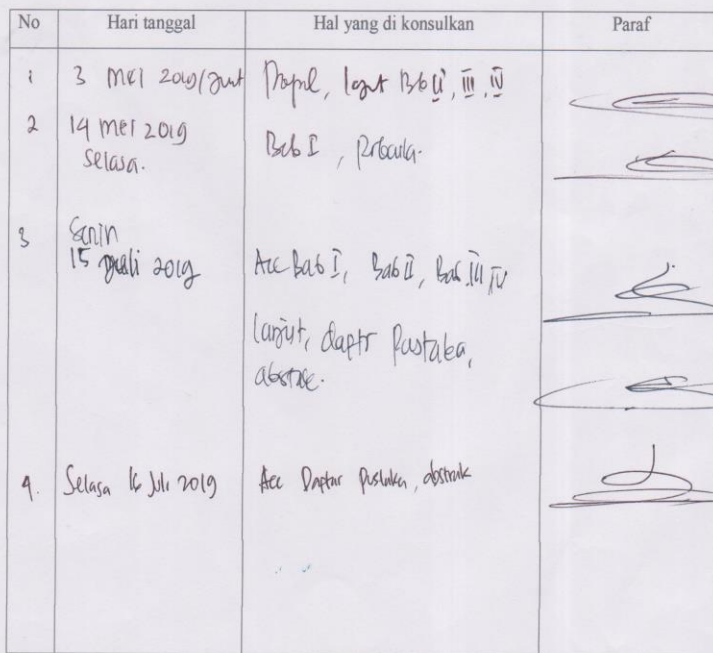 No Hari tanggal Hal yang di konsulkan Paraf
1 3 Mei 2019/ Lanjut Bab II, III, IV
2 14 Mei 2019 Bab I
Selasa.
3 Senin
15 Juli 2019 Acc Bab I, Bab II, Bab III, IV
lanjut, daptr Pustaka,
abstrak.
4. Selasa 16 Juli 2019 Acc Daptar Pustaka, abstrak